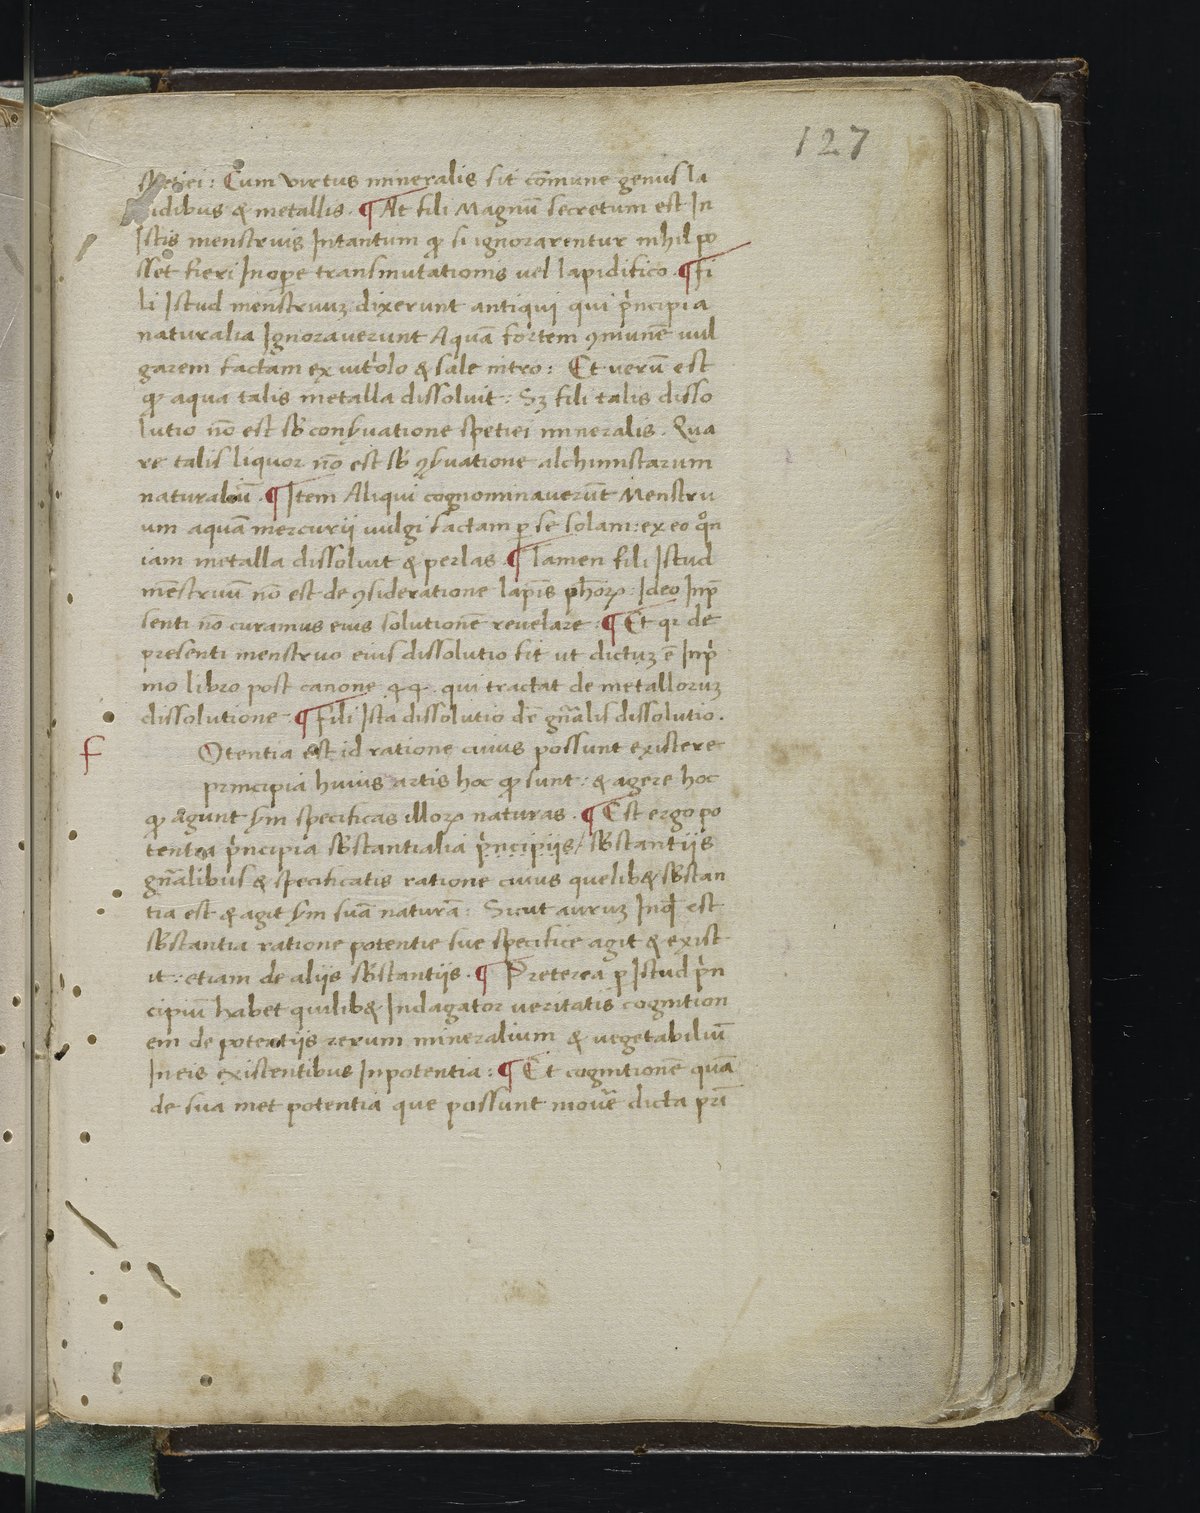 127
spetiei: Cum virtus mineralis sit cōmune genus la
pidibus & metallis. ¶ At fili Magnū secretum est In
Istis menstruis Intantum ꝙ si ignorarentur nihil po
sset fieri In oꝑe transmutationis vel lapidifico. ¶ fi
li Istud menstruuꝫ dixerunt antiqui qui pͥncipia
naturalia Ignoraverunt Aquā fortem ꝯmunē vul
garem factam ex vitͥolo & sale nitro: Et verū est
ꝙ aqua talis metalla dissoluit: Sꝫ fili talis disso
lutio nō est sƀ conẜuatione spetiei mineralis. Qua
re talis liquor nō est sƀ ꝯẜuatione alchimistarum
naturaliū. ¶ Item Aliqui cognominaverūt Menstru
um aquā mercurii vulgi factam ꝑ se solam: ex eo qͦn
iam metalla dissoluit & perlas. ¶ Tamen fili Istud
mēstruū nō est de ꝯsideratione lapīs pħoꝝ: Ideo Inp̄
senti nō curamus eius solutionē revelare: ¶ Et qꝛ de
presenti menstruo eius dissolutio fit ut dictuꝫ ē Inpͥ
mo libro post canone 44. qui tractat de metalloruꝫ
dissolutione. ¶ fili Ista dissolutio dē gn̄alis dissolutio.
f
Otentia est id ratione cuius possunt existere
principia huius artis hoc ꝙ sunt: & agere hoc
ꝙ agunt ẜm specificas illoꝝ naturas. ¶ Est ergo po
tentia pͥncipia sƀstantialia pͥncipiis / sƀstantiis
gn̄alibus & specificatis ratione cuius quelib& sƀstan
tia est & agit ẜm suā naturā: Sicut auruꝫ Inqͣ est
sƀstantia ratione potentie sue specifice agit & exist
it: etiam de aliis sƀstantiis. ¶ Preterea ꝑ Istud pͥn
cipiū habet quilib& Indagator veritatis cognition
em de potentiis rerum mineralium & vegetabiliū
In eis existentibus Inpotentia: ¶ Et cognitionē quā
de sua met potentia que possunt mouē̄ dicta pri